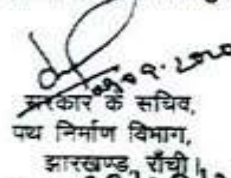 सरकार के सचिव,
पथ निर्माण विभाग,
झारखण्ड, राँची।